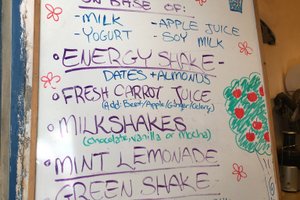 ON BASE OF:
- MILK - APPLE JUICE
- YOGURT - SOY MILK
• ENERGY SHAKE -
DATES + ALMONDS
• FRESH CARROT JUICE
(Add: Beet/Apple/Ginger/Celery)
• MILKSHAKES
(chocolate, vanilla or mocha)
• MINT LEMONADE
GREEN SHAKE